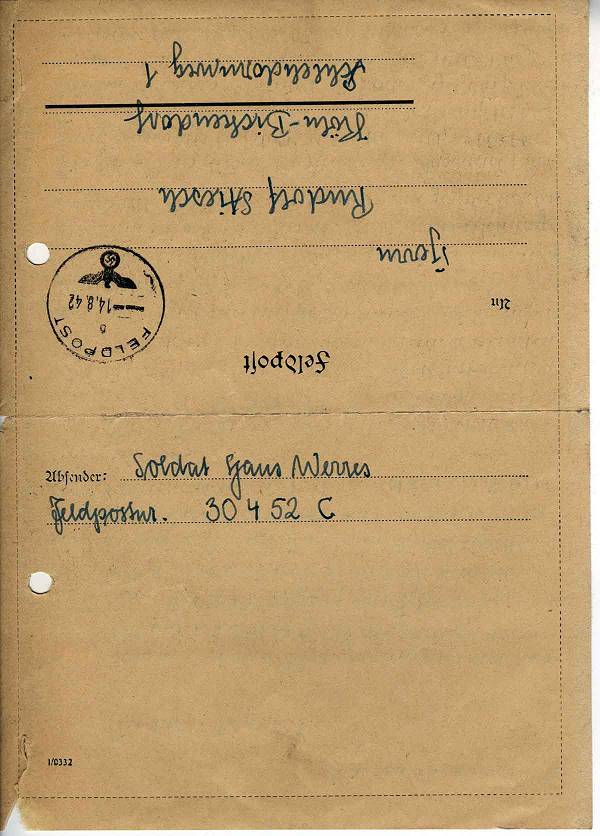 Feldpost
FELDPOST
14.8.42
An
Herrn
Rudolf Stiesch
Köln-Bickendorf
Schlehdornweg 1
Absender: Soldat Hans Werres
Feldpostnr. 30452 C
1/0332